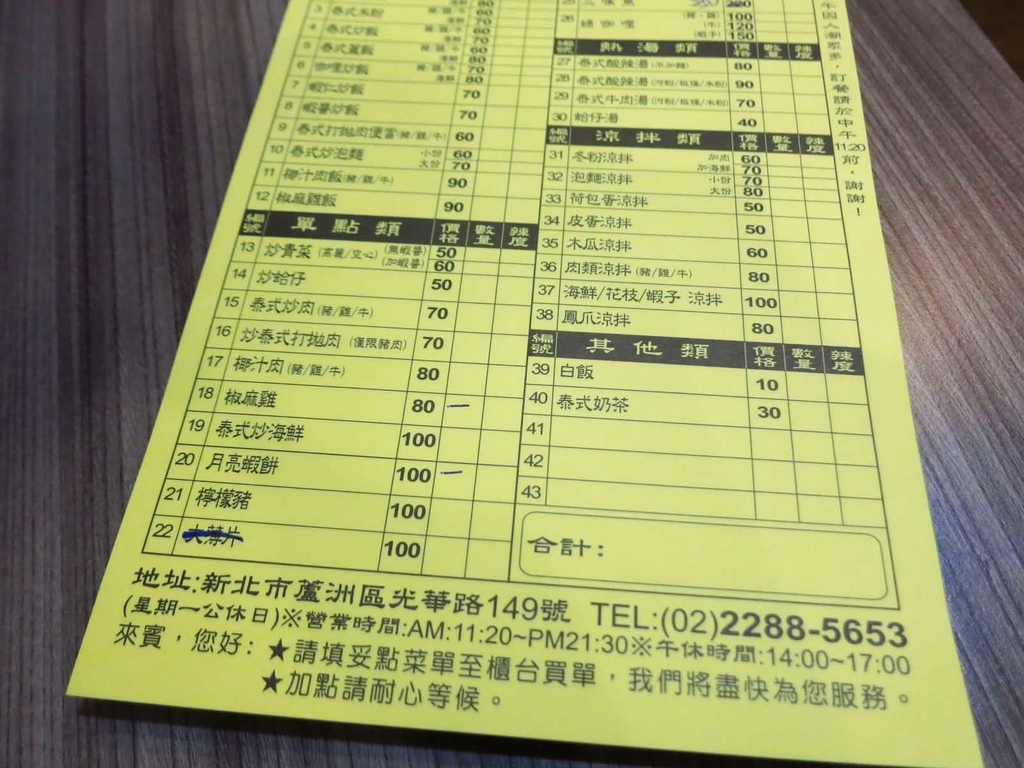 3 泰式米粉 (豬/雞/牛) 60 海鮮 80
4 泰式炒飯 (豬/雞/牛) 60 海鮮 70
5 泰式蓋飯 (豬/雞/牛) 60 海鮮 70
6 咖哩炒飯 (豬/雞/牛) 70 海鮮 80
7 蝦仁炒飯 70
8 蝦醬炒飯 70
9 泰式打拋肉便當(豬/雞/牛) 60
10 泰式炒泡麵 小份 60 大份 70
11 椰汁肉飯(豬/雞/牛) 90
12 椒麻雞飯 90
編號 單點類 價格 數量 辣度
13 炒青菜 (高麗/空心) (無蝦醬) 50 (加蝦醬) 60
14 炒蛤仔 50
15 泰式炒肉(豬/雞/牛) 70
16 炒泰式打拋肉 (僅限豬肉) 70
17 椰汁肉(豬/雞/牛) 80
18 椒麻雞 80 一
19 泰式炒海鮮 100
20 月亮蝦餅 100 一
21 檸檬豬 100
22 大薄片 100
25 三味魚
26 綠咖哩 (豬、雞) 100 (牛) 120 (蝦子) 150
編號 熱湯類 價格 數量 辣度
27 泰式酸辣湯(不加麵) 80
28 泰式酸辣湯(河粉/板條/米粉) 90
29 泰式牛肉湯(河粉/板條/米粉) 70
30 蛤仔湯 40
編號 涼拌類 價格 數量 辣度
31 冬粉涼拌 加肉 60 加海鮮 70
32 泡麵涼拌 小份 70 大份 80
33 荷包蛋涼拌 50
34 皮蛋涼拌 50
35 木瓜涼拌 60
36 肉類涼拌 (豬/雞/牛) 80
37 海鮮/花枝/蝦子 涼拌 100
38 鳳爪涼拌 80
編號 其他類 價格 數量 辣度
39 白飯 10
40 泰式奶茶 30
41
42
43
合計:
午因人潮眾多,訂餐請於中午11:20前,謝謝!
地址:新北市蘆洲區光華路149號 TEL:(02)2288-5653
(星期一公休日)※營業時間:AM:11:20~PM21:30※午休時間:14:00~17:00
來賓,您好:★請填妥點菜單至櫃台買單,我們將盡快為您服務。
★加點請耐心等候。